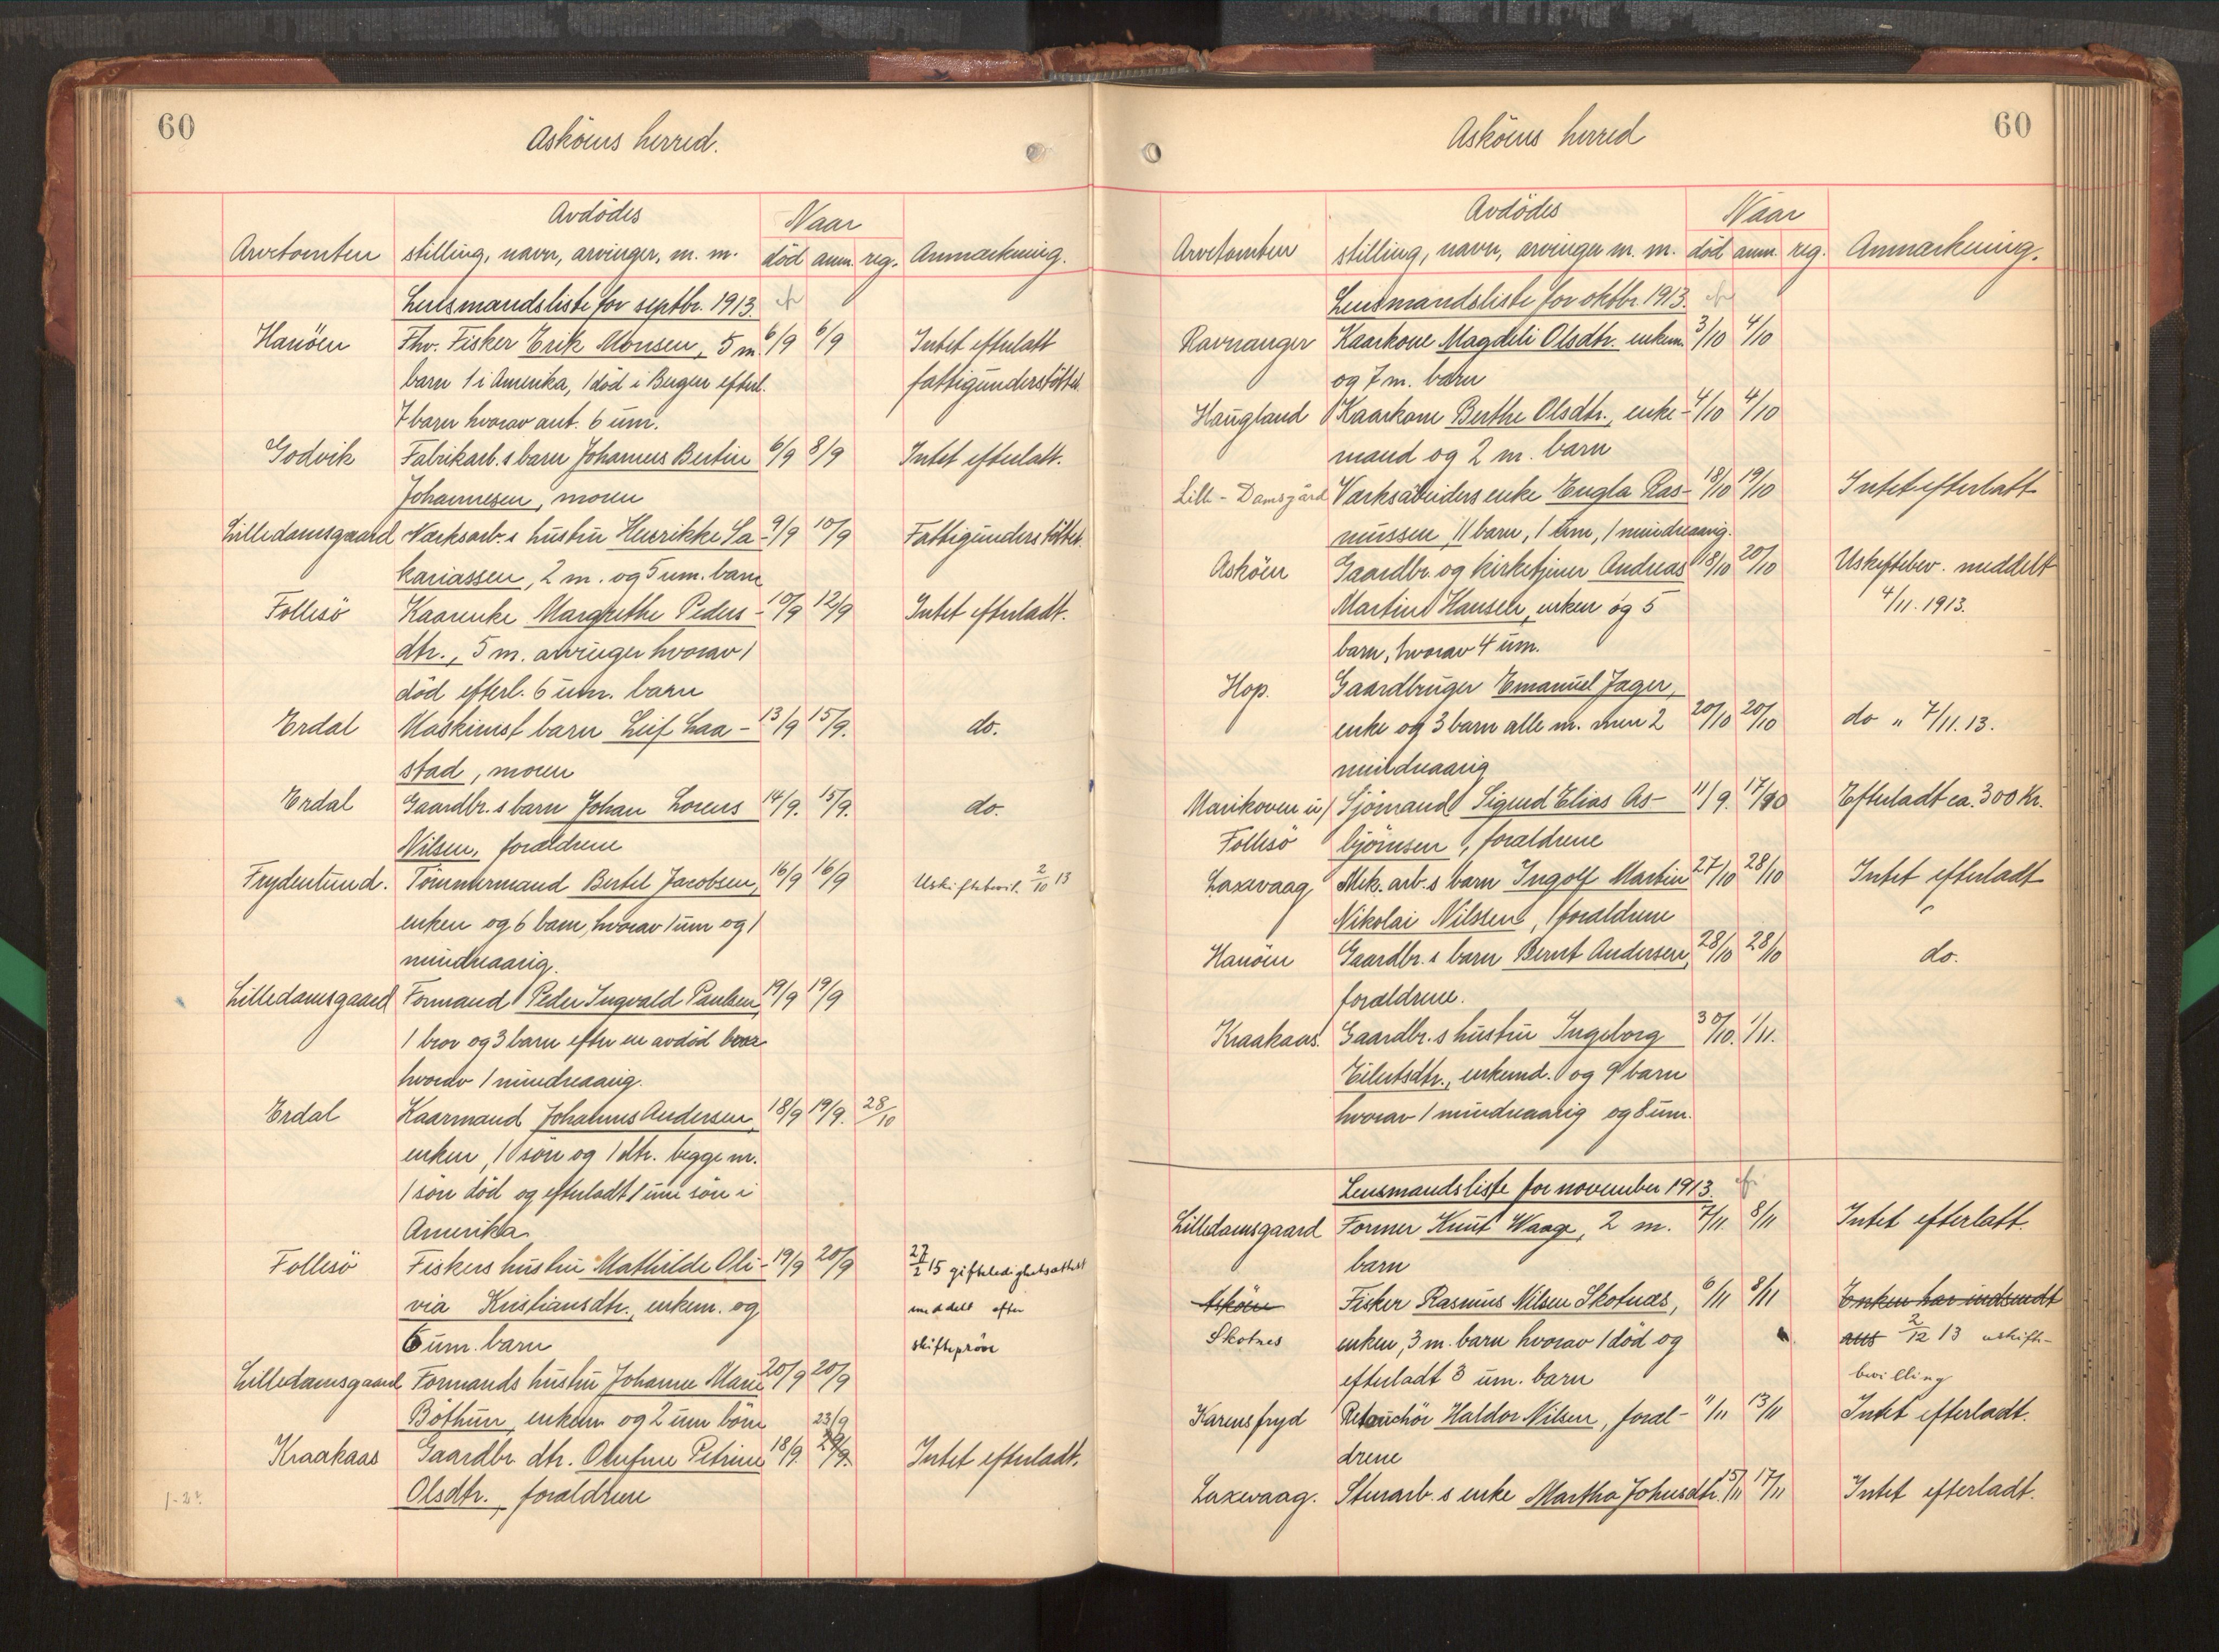 60
Asköens herred.
Avdödes
Naar
Arvetomten stilling, navn, arvinger, m. m. död anm. reg. Anmærkning.
Lensmandsliste for septbr. 1913.
Hanöen Fhv. Fisker Erik Monsen, 5 m. 6/9 6/9 Intet efterlatt
barn 1 i Amerika, 1 död i Bergen efterl. fattigunderstöttet.
7 barn hvorav ant. 6 um.
Godvik Fabrikarb.s barn Johannes Bertin 6/9 8/9 Intet efterlatt.
Johannesen, moren
Lilledamsgaard Værksarb.s hustru Henrikke Sa- 9/9 10/9 Fattigunderstöttet.
kariassen, 2 m. og 5 um. barn
Follesö Kaarenke Margrethe Peders- 10/9 12/9 Intet efterladt.
dtr., 5 m. arvinger hvorav 1
död efterl. 6 um. barn
Erdal Maskinist barn Leif Laa- 13/9 15/9. do.
stad, moren
Erdal Gaardbr.s barn Johan Lorens 14/9. 15/9. do.
Nilsen, forældrene
Frydenlund. Tömmermand Bertel Jacobsen, 16/9 16/9 Uskiftebevil. 2/10 13
enken og 6 barn, hvorav 1 um og 1
mindreaarig.
Lilledamsgaard Formand Peder Ingvald Paulsen, 19/9 19/9
1 bror og 3 barn efter en avdöd bror
hvorav 1 mindreaarig.
Erdal Kaarmand Johannes Andersen, 18/9 19/9. 28/10
enken, 1 sön og 1 dtr. begge m.
1 sön död og efterladt 1 um sön i
Amerika
Follesö Fiskers hustru Mathilde Oli- 19/9 20/9 27/2 15 gifteledighetsattest
via Kristiansdtr., enkem. og meddelt efter
6 um. barn skiftepröve
Lilledamsgaard Formands hustru Johanne Marie 20/9 20/9
Böthun, enkem og 2 um börn 23/9
Kraakaas Gaardbr. dtr. Olufine Petrine 18/9. 29/9. Intet efterladt.
Olsdtr., forældrene
60
Asköens herred
Avdödes
Naar
Arvetomten stilling, navn, arvinger m. m. död anm. reg. Anmærkning.
Lensmandsliste for oktbr. 1913.
Ravnanger Kaarkone Magdeli Olsdtr. enkem. 3/10 4/10
og 7 m. barn
Haugland Kaarkone Berthe Olsdtr., enke- 4/10 4/10
mand og 2 m. barn
Lille-Damsgård Værksarbeiders enke Engla Ras- 18/10 19/10 Intet efterlatt
mussen, 11 barn, 1 um, 1 mindreaarig.
Asköen Gaardbr. og kirketjener Andreas 18/10 20/10 Uskiftebev. meddelt
Martin Hansen, enken og 5 4/11. 1913.
barn, hvorav 4 um.
Hop. Gaardbruger Emanuel Jager,
enke og 3 barn alle m. men 2 20/10 20/10 do " 7/11. 13.
mindreaarig
Marikoven u/ Sjömand Sigurd Elias As- 11/9. 17/10 Efterladt ca. 300 Kr.
Follesö björnsen, forældrene
Laxevaag Mek. arb.s barn Ingolf Martin 27/10 28/10 Intet efterladt
Nikolai Nilssen, forældrene
Hanöen Gaardbr.s barn Bernt Andersen, 28/10 28/10 do.
forældrene.
Kraakaas. Gaardbr.s hustru Ingeborg 30/10. 1/11.
Eilertsdtr., enkemd. og 9 barn
hvorav 1 mindreaarig og 8 um.
Lensmandsliste for november 1913.
Lilledamsgaard Former Knut Waage, 2 m. 7/11 8/11 Intet efterlatt.
barn
Asköen Fisker Rasmus Nilsen Skotnæs, 6/11 8/11 Enken har indsendt
Skotnes enken, 3 m. barn hvorav 1 död og ans 2/12 13 uskifte-
efterladt 3 um. barn bevilling
Karensfryd Retouchör Haldor Nilsen, foræl- 11/11 13/11 Intet efterladt.
drene
Laxevaag. Stuerarb.s enke Martha Johnsdtr. 15/11 17/11 Intet efterladt.